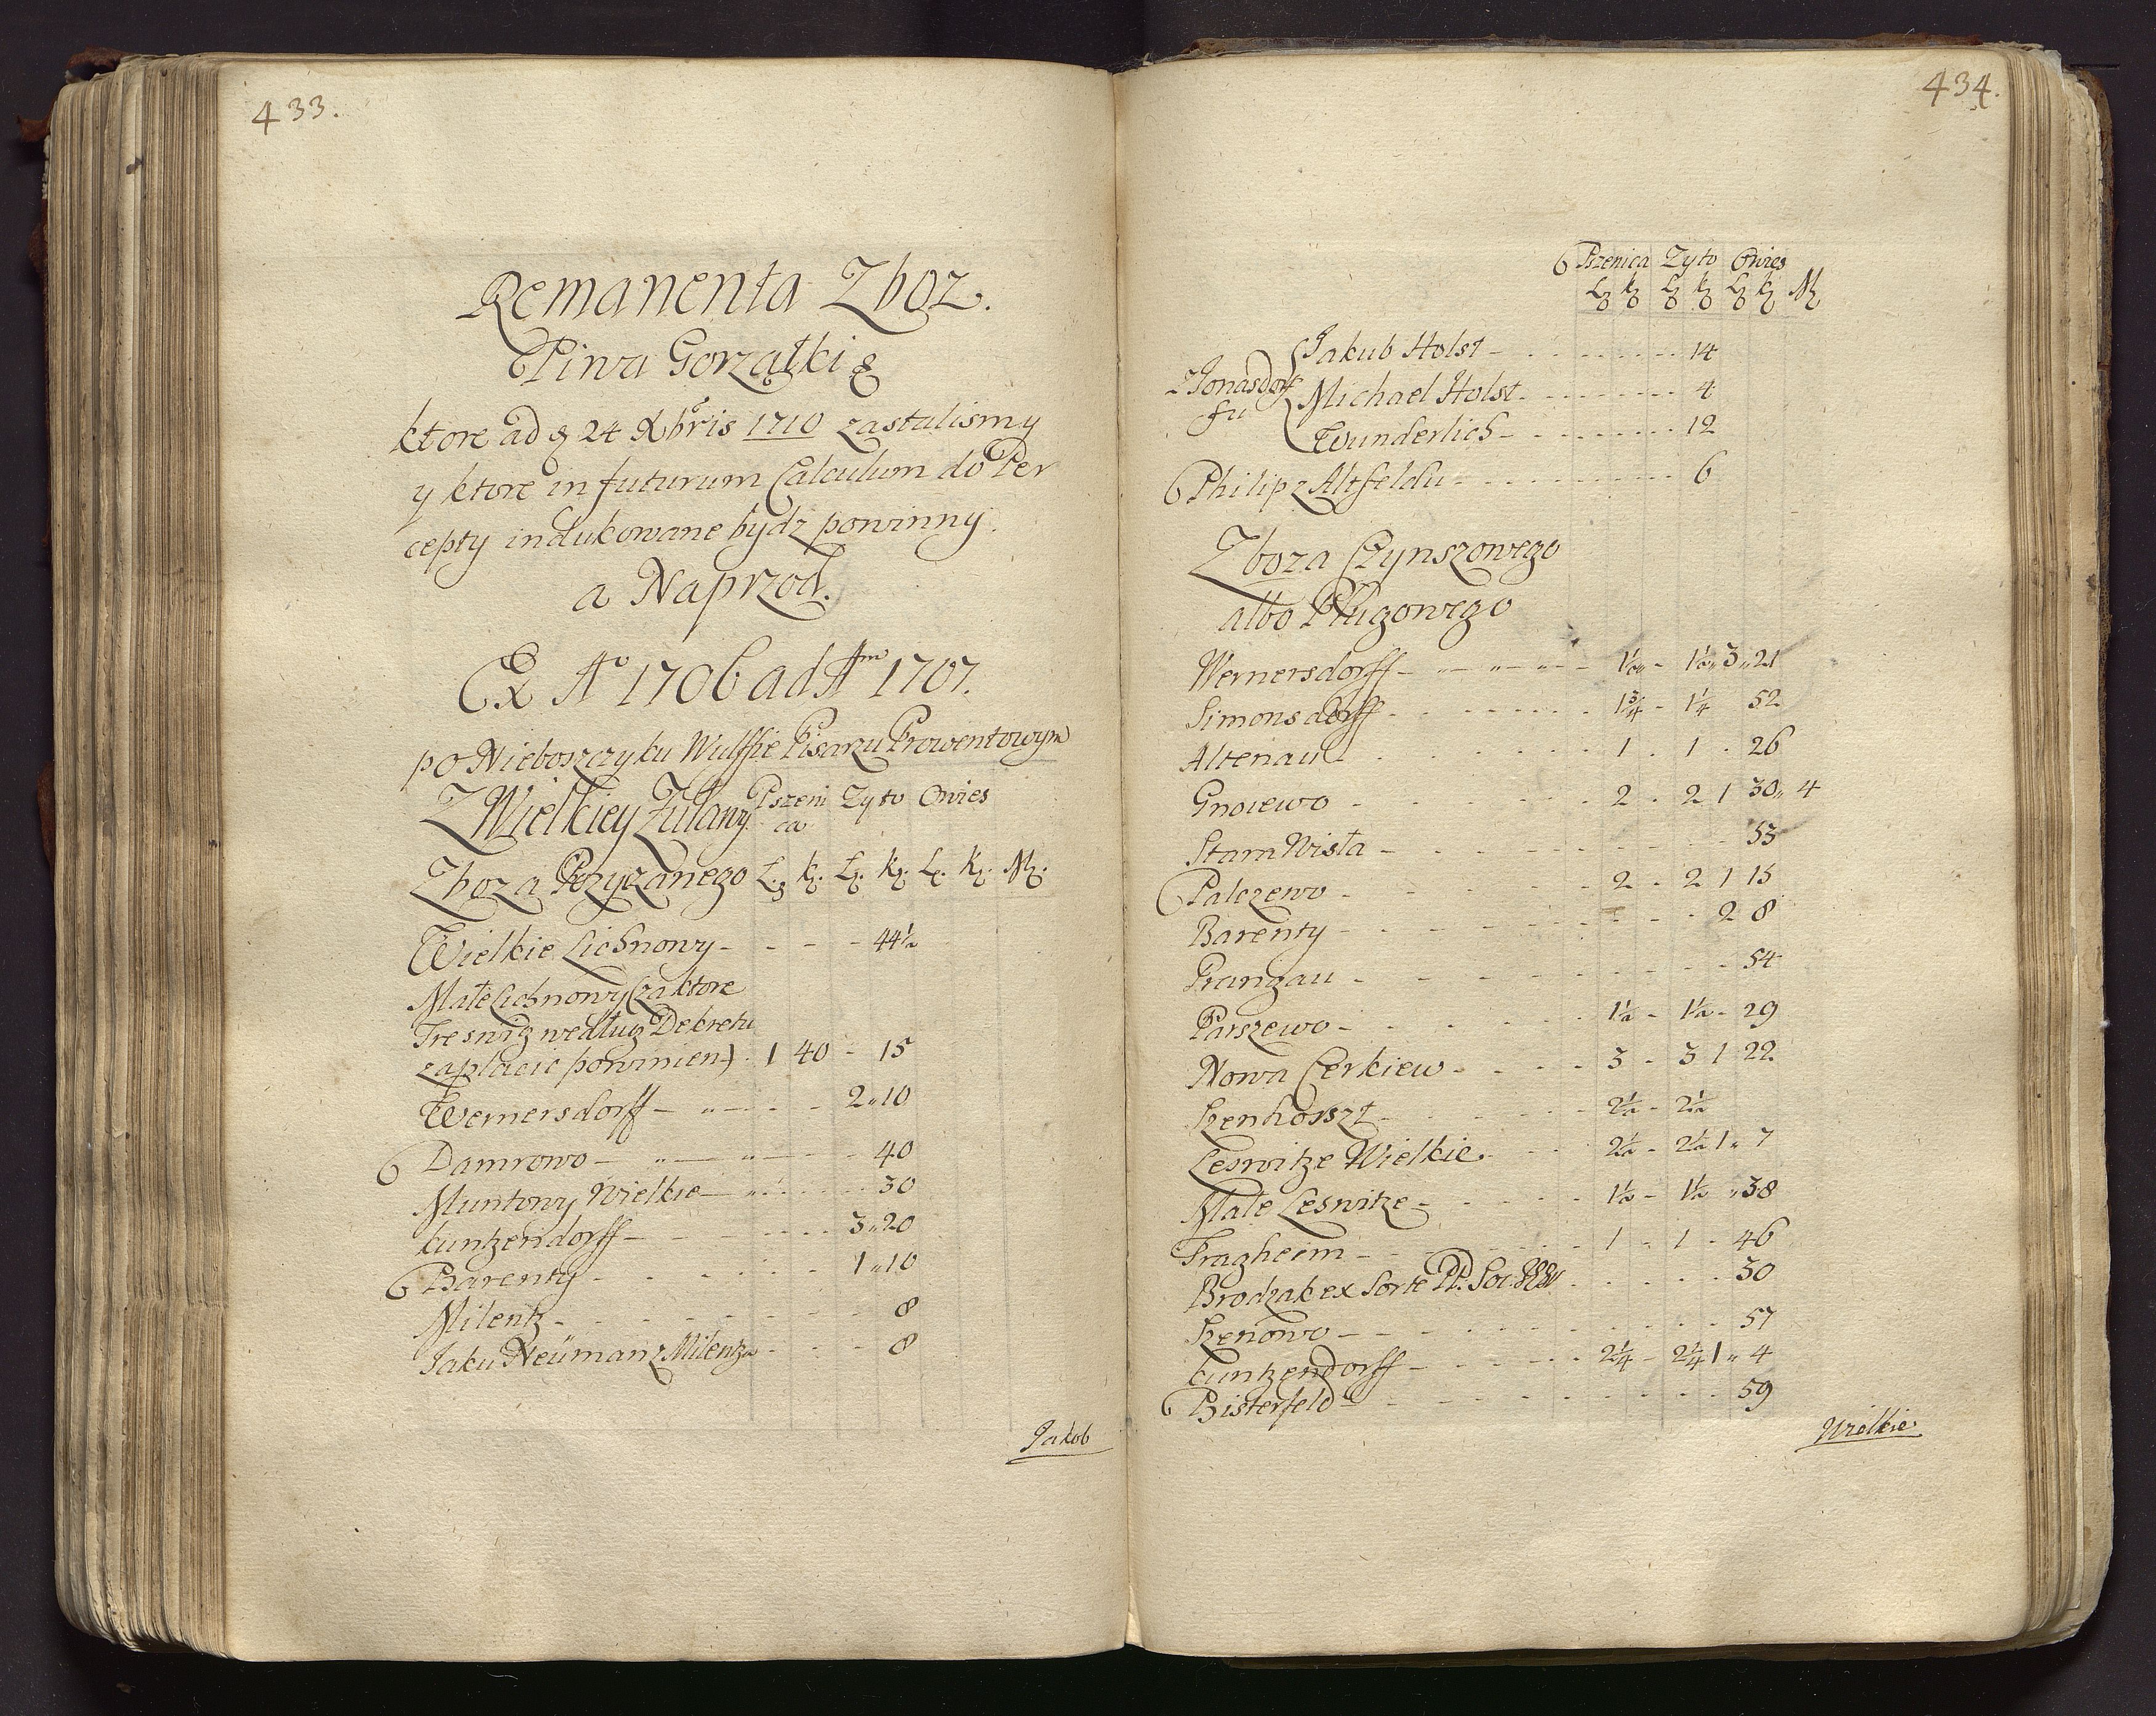 433.
Remanenta Zboz.
Piwa Gorzałki &
ktore ad d 24 Xbris 1710 zastalismy
y ktore in futurum Calculum do Per
cepty indukowane bydz powinny.
a Naprzod.
Ex Ao 1706 ad Am 1707.
po Nieboszczyku Wulffie Pisarzu Prowentowym
Z Wielkiey Zuławy Pszeni Zyto Owies
ca
Zboza Pozyczanego Lz. Kz. Lz. Kz. Lz. Kz. Mz.
Wielkie Lichnowy - - - - 44½
Małe Lichnowy (za ktore
Treswig według Dekretu
zapłacic powinien) . 1 40 - 15
Wernersdorff - „ - - - 2„10
Damrowo - „ - „ - - - 40
Muntowy Wielkie - „ - - - 30
Kuntzendorff - - - - - - 3„20
Barenty - - - - - - 1„10
Milentz - - - - - - - 8
Jaku Neüman z Milentza - - - 8
Jakob
434.
Pszenica Zyto Owies
Lz Kz Lz Kz Lz Kz Mz
Jakub Holst - - - - - - 14
z Jonasdorf
fu
Michael Holst - - - - - - 4
Wunderlich - - - - - - 12
Philip z Altfeldu - - - - - - 6
Zboza Czynszowego
albo Pługowego
Wernersdorff - „ - „ - „ - - 1½ - 1½„3„21
Simonsdorff - - - - - - 1¾ - 1¼ 52
Altenau - - - - - 1 - 1 - 26
Gnoiewo - - - - - 2 - 2 1 30„4
Stara Wisła - - - - - - - 53
Palczewo - - - - - 2 - 2 1 15
Barenty - - - - - - - 2 8
Prangau - - - - - - - 54
Parszewo - - - - - 1½ - 1½ - 29
Nowa Cerkiew - - - - 3 - 3 1 22
Szenhorszt - - - - - 2½ - 2½
Leswitze Wielkie - - - 2½ - 2½ 1„7
Małe Leswitze - - - - 1½ - 1½ „38
Tragheim - - - - - 1 - 1 - 46
Brodzak ex Sorte Pt. Soc. - - - - - 30
Szenowo - - - - - - - 57
Kuntzendorff - - - - - 2¼ - 2¼ 1„4
Bisterfeld - - - - - - - 59
Wielkie